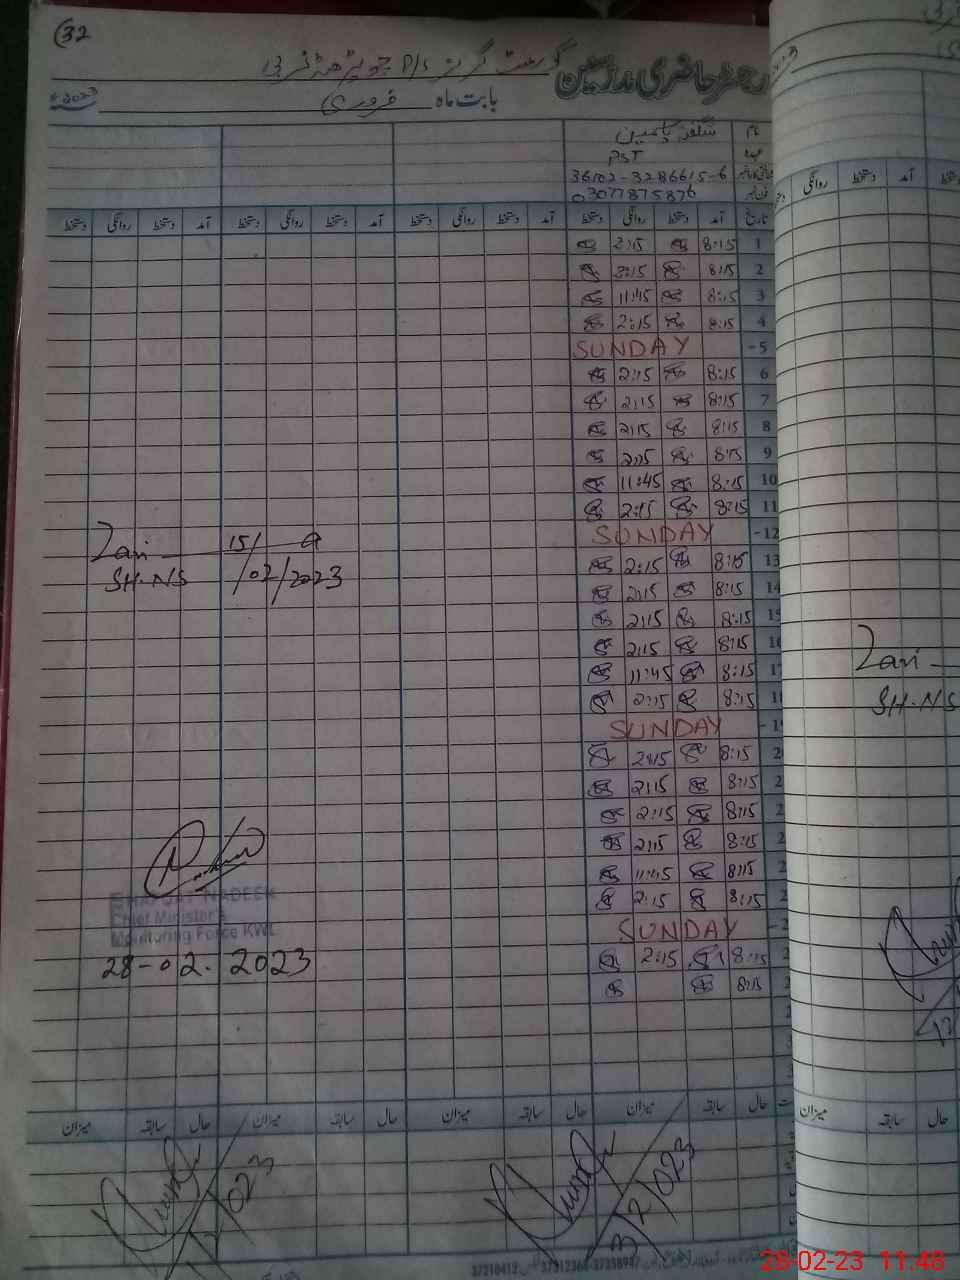 32
رجسٹر حاضری مدرسین گورنمنٹ گرلز P/S
بابت ماہ فروری 2023
نام شگفتہ یاسمین
عہدہ PST
36102-3286615-6
03077875876
تاریخ آمد دستخط روانگی دستخط آمد دستخط روانگی دستخط آمد دستخط روانگی دستخط
1 8:15 2:15
2 8:15 2:15
3 8:15 11:45
4 8:15 2:15
5 SUNDAY
6 8:15 2:15
7 8:15 2:15
8 8:15 2:15
9 8:15 2:15
10 8:15 11:45
11 8:15 2:15
12 SUNDAY
13 8:15 2:15
14 8:15 2:15
8:15 2:15
8:15 2:15
8:15 11:45
8:15 2:15
SUNDAY
8:15 2:15
8:15 2:15
8:15 2:15
8:15 2:15
8:15 11:45
8:15 2:15
SUNDAY
8:15 2:15
8:15
15/
SH.NS /02/2023
SH.NS
NADEEM
Chief Minister's
Monitoring Force KWL
28-02-2023
حال سابقہ میزان حال سابقہ میزان حال سابقہ میزان
3/2/023
28-02-23 11:48
روانگی دستخط آمد
میزان سابقہ حال